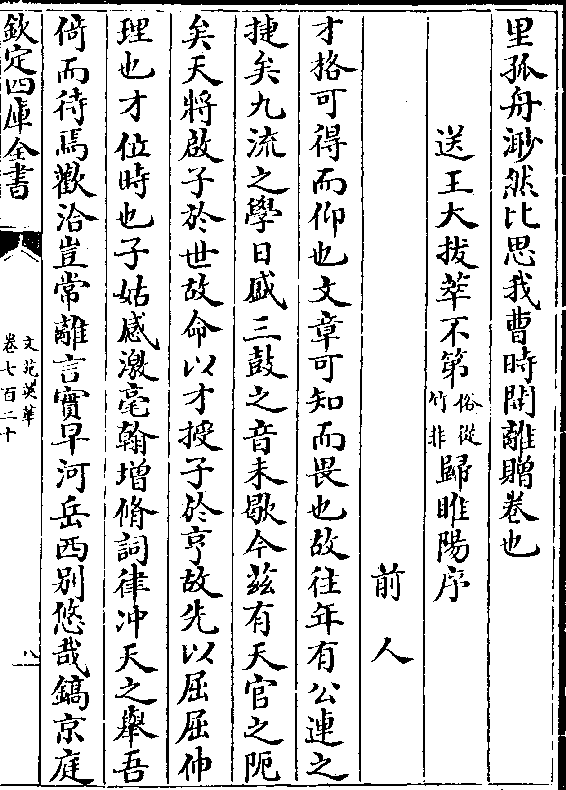 里孤舟渺然比思我曹時開離贈卷也
送王大拔萃不第俗從竹非歸睢陽序
前人
才格可得而仰也文章可知而畏也故往年有公連之
捷矣九流之學日盛三鼓之音未歇今茲有天官之阨
矣天將啟子於世故命以才授子於亨故先以屈屈伸
理也才位時也子姑感激毫翰增脩詞律冲天之舉吾
倚而待焉歡洽豈常離言實早河岳西别悠哉鎬京庭
欽定四庫全書
文苑英華
卷七百二十
八